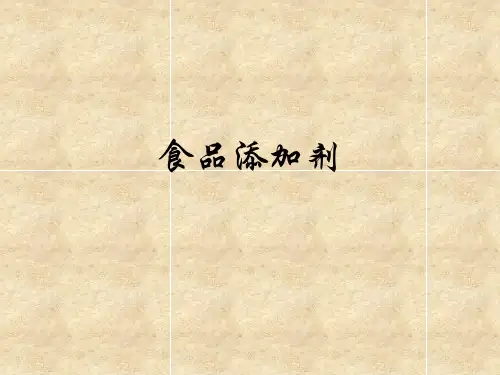 食品添加剂